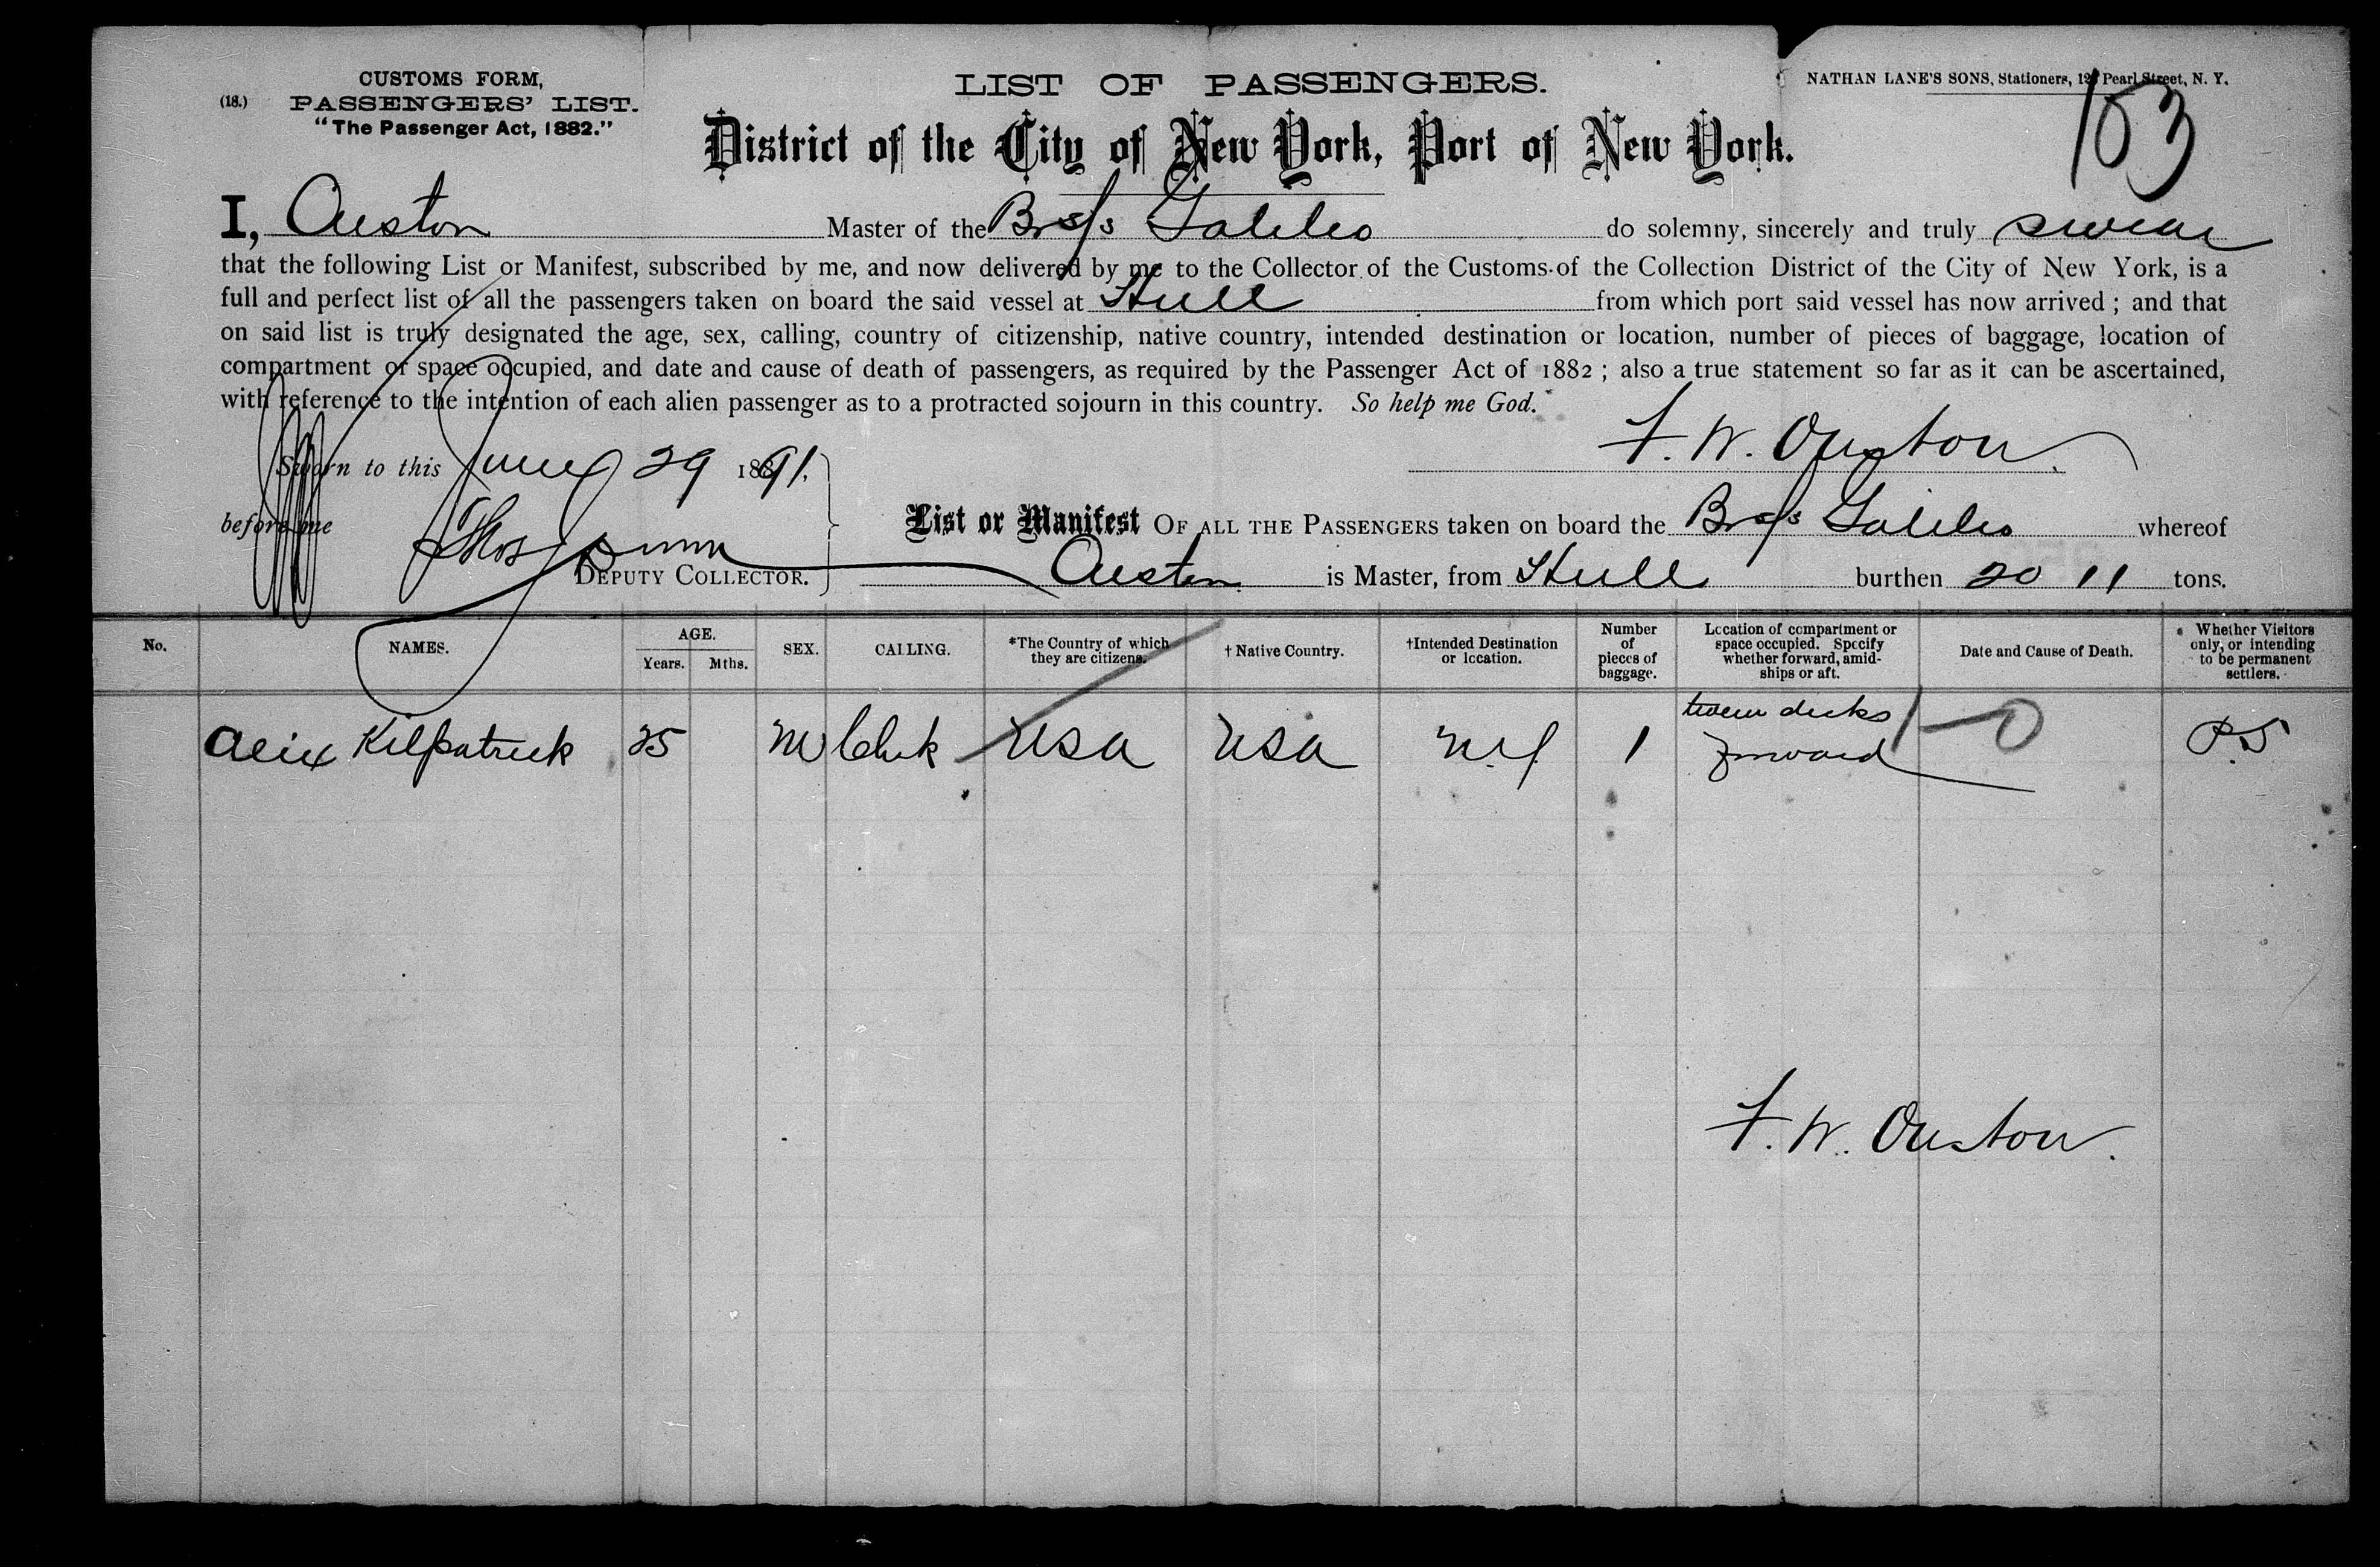 (18.)
CUSTOMS FORM,
PASSENGERS' LIST.
"The Passenger Act, 1882."
LIST OF PASSENGERS.
NATHAN LANE'S SONS, Stationers, Pearl Street, N. Y.
103
District of the City of New York, Port of New York.
I, Ouston Master of the Br s/s Galileo do solemny, sincerely and truly swear
that the following List or Manifest, subscribed by me, and now delivered by me to the Collector of the Customs of the Collection District of the City of New York, is a
full and perfect list of all the passengers taken on board the said vessel at Hull from which port said vessel has now arrived ; and that
on said list is truly designated the age, sex, calling, country of citizenship, native country, intended destination or location, number of pieces of baggage, location of
compartment or space occupied, and date and cause of death of passengers, as required by the Passenger Act of 1882 ; also a true statement so far as it can be ascertained,
with reference to the intention of each alien passenger as to a protracted sojourn in this country. So help me God.
F. W. Ouston
Sworn to this June 29 1891.
before me Thos
DEPUTY COLLECTOR.
List or Manifest OF ALL THE PASSENGERS taken on board the Br s/s Galileo whereof
Ouston is Master, from Hull burthen 2011 tons.
No. NAMES. AGE. Years. Mths. SEX. CALLING. *The Country of which they are citizens. † Native Country. †Intended Destination or location. Number of pieces of baggage. Location of compartment or space occupied. Specify whether forward, amidships or aft. Date and Cause of Death. Whether Visitors only, or intending to be permanent settlers.
Alex Kilpatrick 25 M Clerk USA USA N.Y. 1 tween decks forward 1-0 P.S
F. W. Ouston.